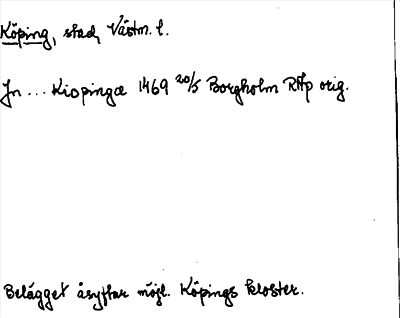 Köping, stad, Västm. l.
Jn ... Kiopingæ 1469 20/5 Borgholm RAp orig.
Belägget åsyftar möjl. Köpings kloster.